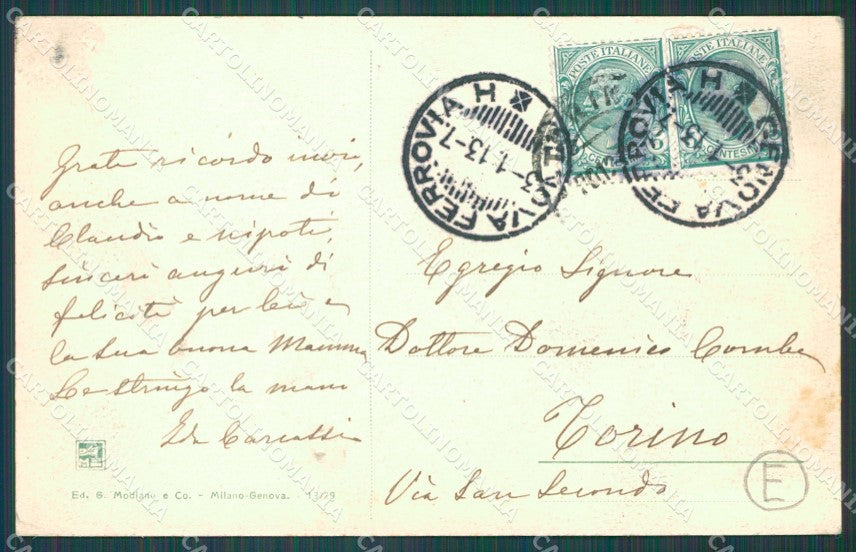 Grate ricordo
anche a nome di
Claudio e nipoti,
sinceri auguri di
felicità per Lei e
la sua buona Mamma
Le stringo la mano
Ed. G. Modiano e Co. - Milano-Genova. 13/29
POSTE ITALIANE
POSTE ITALIANE
CENTESIMI
GENOVA FERROVIA H
3-1.13-7
GENOVA FERROVIA H
Egregio Signore
Dottore Domenico
Torino
Via San Secondo
E
CARTOLINOMANIA